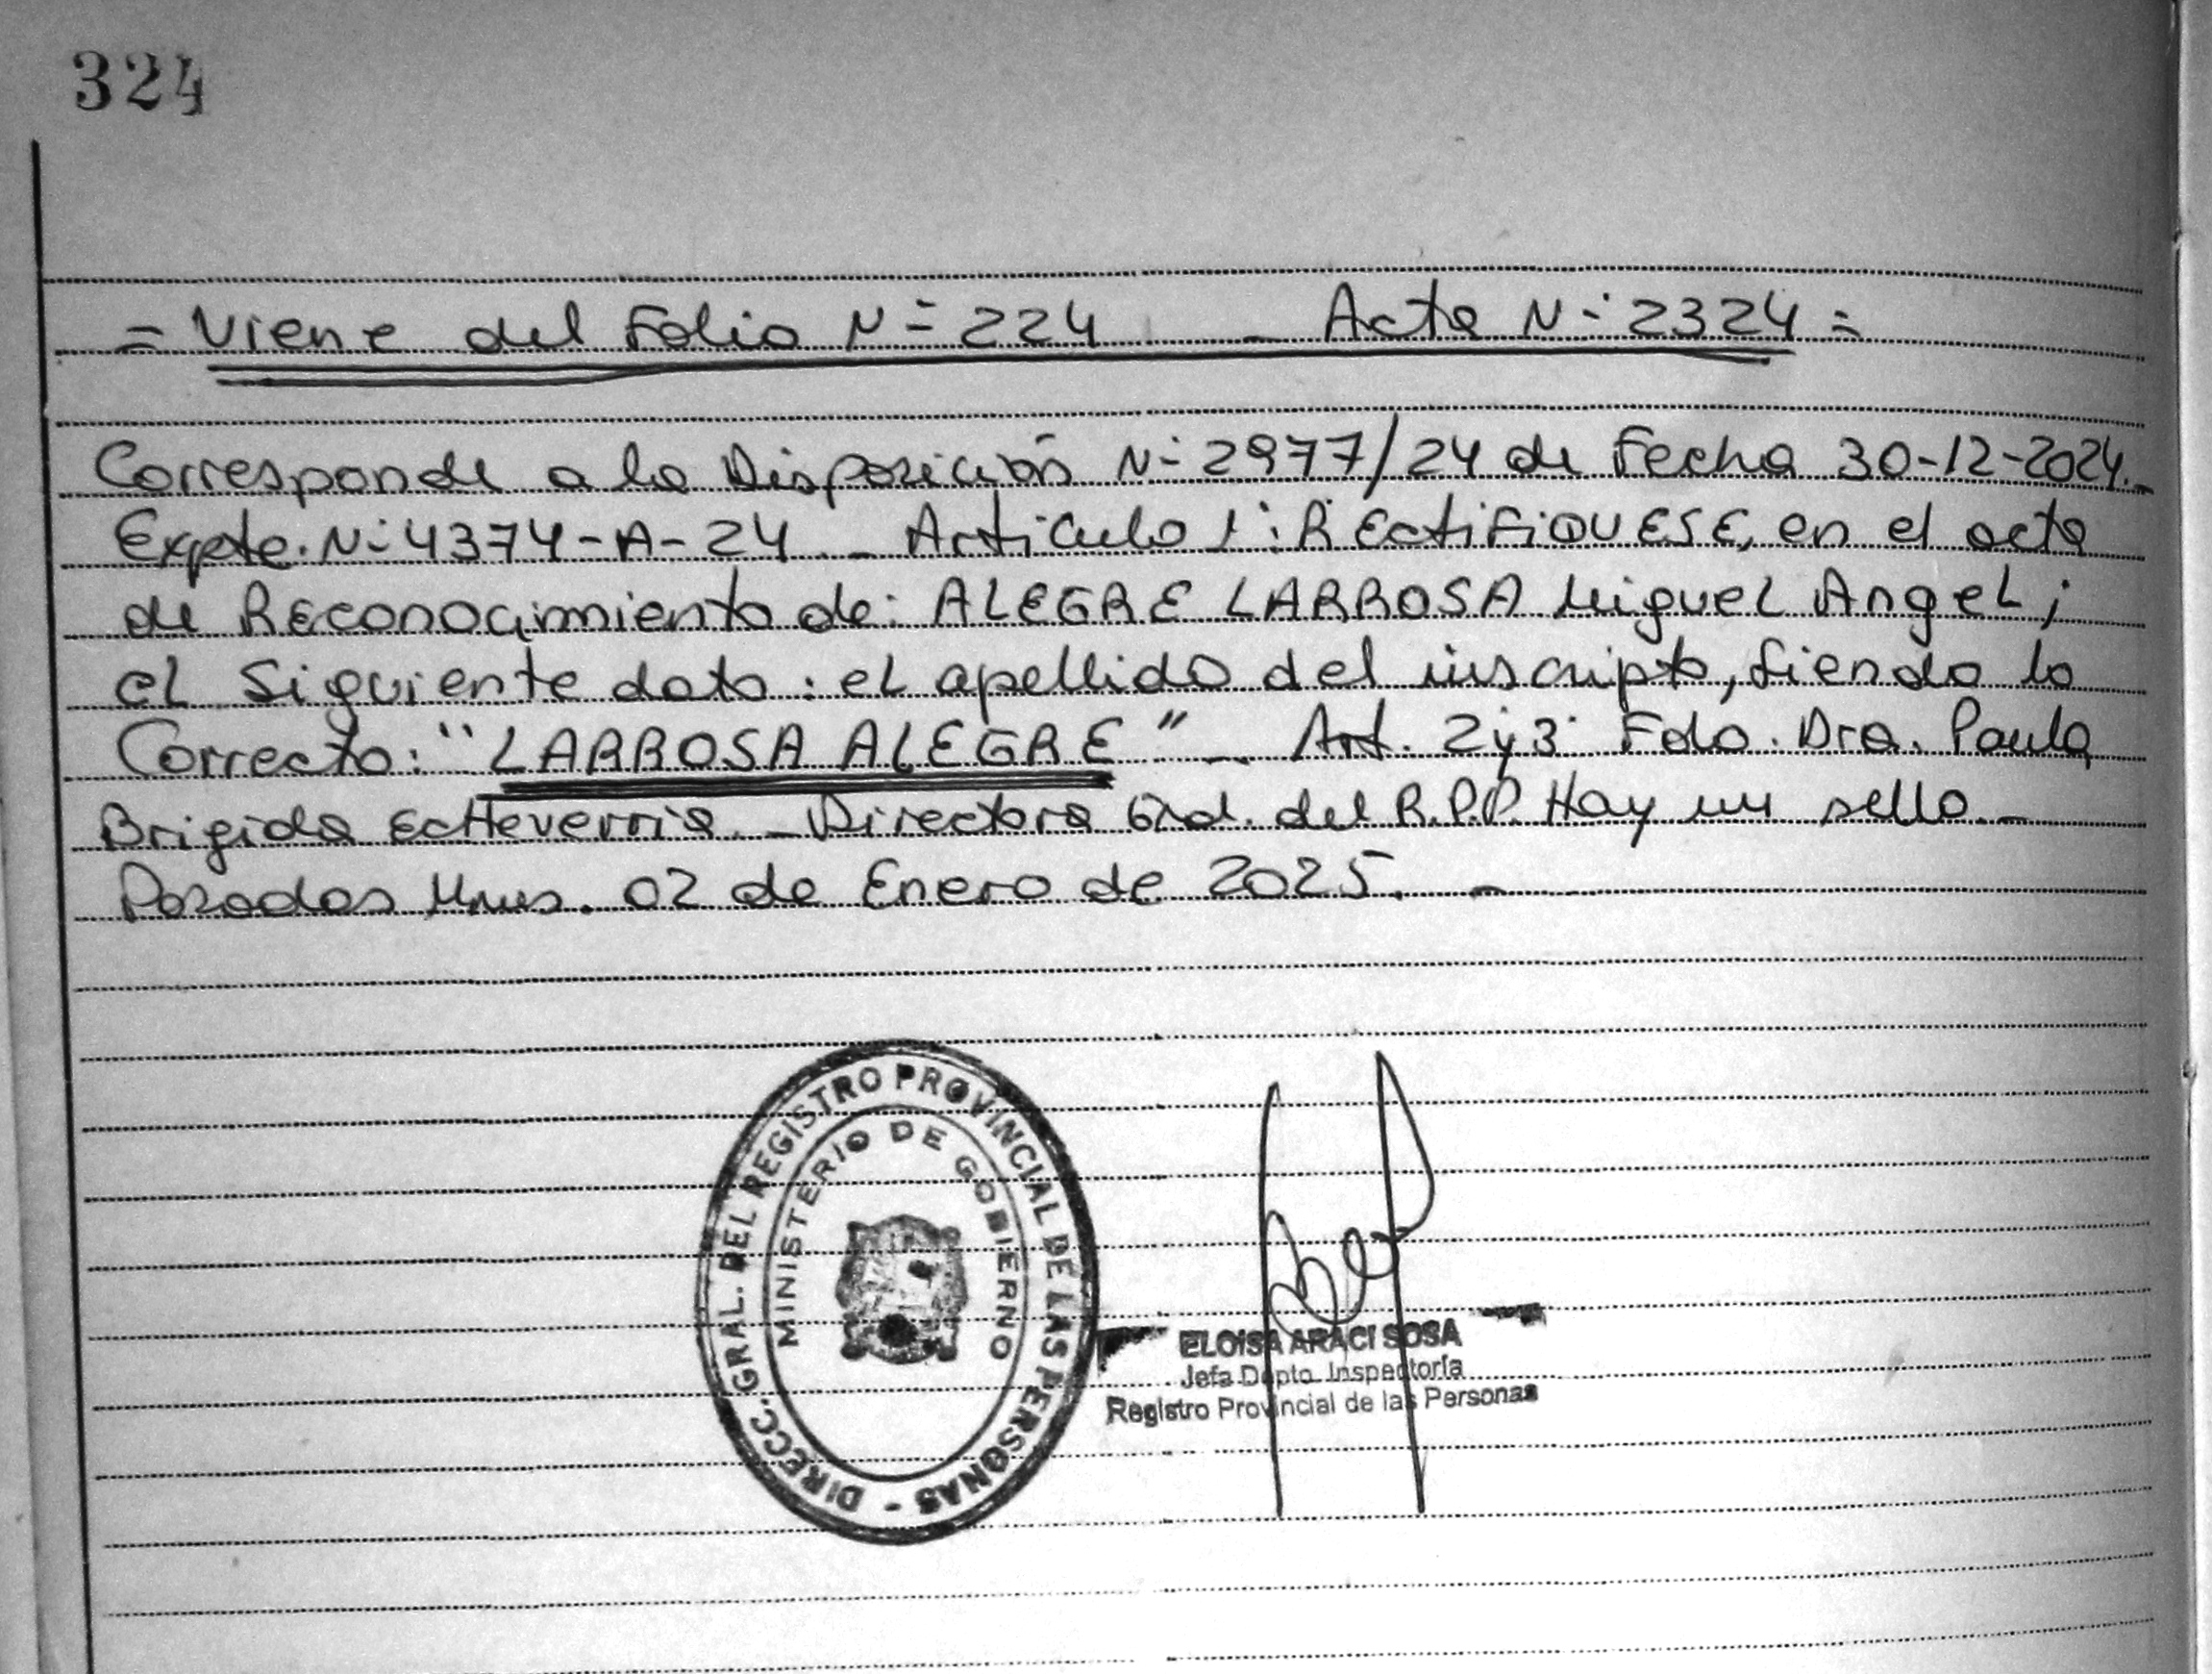 324
= Viene del Folio N° 224 - Acta N° 2324 =
Corresponde a la Disposición N° 2977/24 de Fecha 30-12-2024.-
Expte. N° 4374-A-24 - Articulo 1°: RECtiFiQUESE, en el acta
de Reconocimiento de: ALEGRE LARROSA Miguel Angel;
el Siguiente dato: el apellido del inscripto, siendo lo
Correcto: "LARROSA ALEGRE" - Art. 2 y 3° Fdo. Dra. Paula
Brigida Echeverria - Directora Gral. del R.P.P. Hay un sello.-
Posadas Mnes. 02 de Enero de 2025. -
DIRECC. GRAL. DEL REGISTRO PROVINCIAL DE LAS PERSONAS -
MINISTERIO DE GOBIERNO
ELOISA ARACI SOSA
Jefa Depto. Inspectoría
Registro Provincial de las Personas